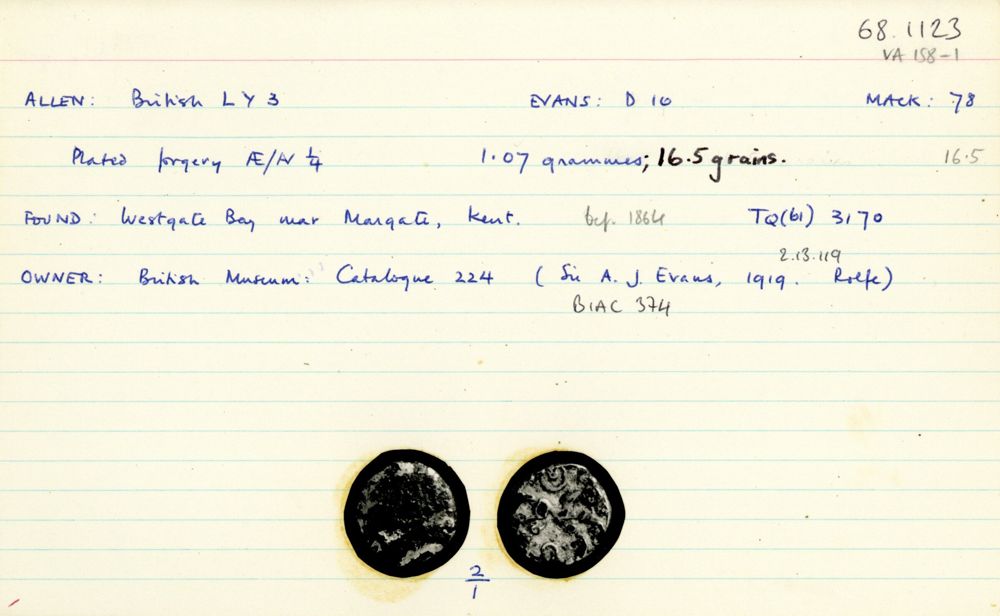 68.1123
VA 158-1
ALLEN: British L Y 3 EVANS: D 10 MACK: 78
Plated forgery Æ/N ¼ 1.07 grammes; 16.5 grains. 16.5
FOUND: Westgate Bay near Margate, Kent. bef. 1864 TQ(61) 3170
2.13.119
OWNER: British Museum: Catalogue 224 (Sir A. J. Evans, 1919. Rolfe)
BIAC 374
2
1